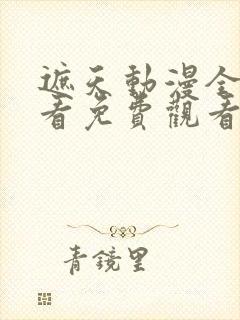 遮天動漫全
看免費觀看
青鏡里